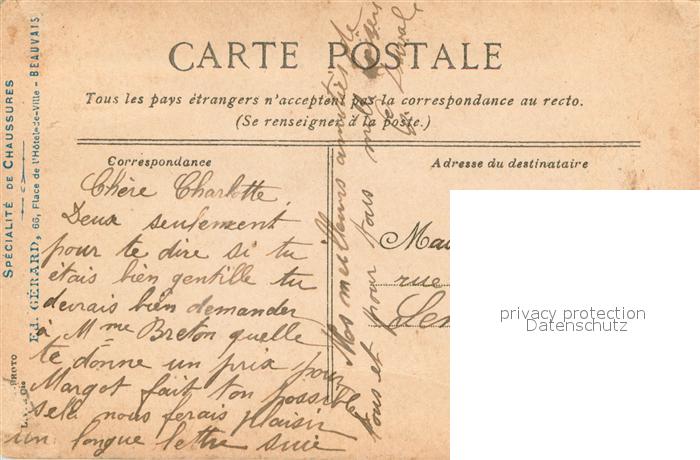 CARTE POSTALE
Tous les pays étrangers n'acceptent pas la correspondance au recto.
(Se renseigner à la poste.)
Correspondance
Adresse du destinataire
Chère Charlotte
Deux seulement
pour te dire si tu
étais bien gentille tu
devrais bien demander
à Mme Breton quelle
te donne un prix pour
Margot fait ton possible
sela nous ferais plaisir
un longue lettre suie
Mes meilleurs amitiés de
tous et pour tous mille
Mad
rue
Sen
SPÉCIALITÉ DE CHAUSSURES
Ed. GÉRARD, 66, Place de l'Hôtel-de-Ville - BEAUVAIS
PHOTO
privacy protection
Datenschutz